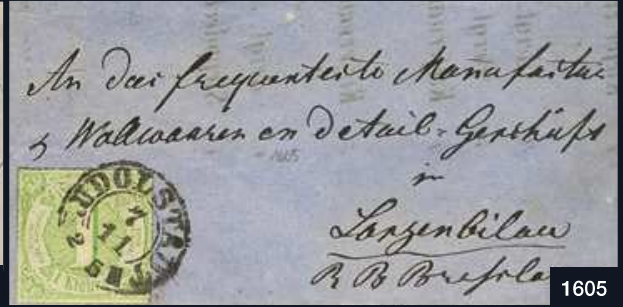 An das frequenteste Manufactur
& Wollwaaren en detail-Geschäft
in
Langenbilau
R B Bresla
RUDOLSTADT
7
11
1605